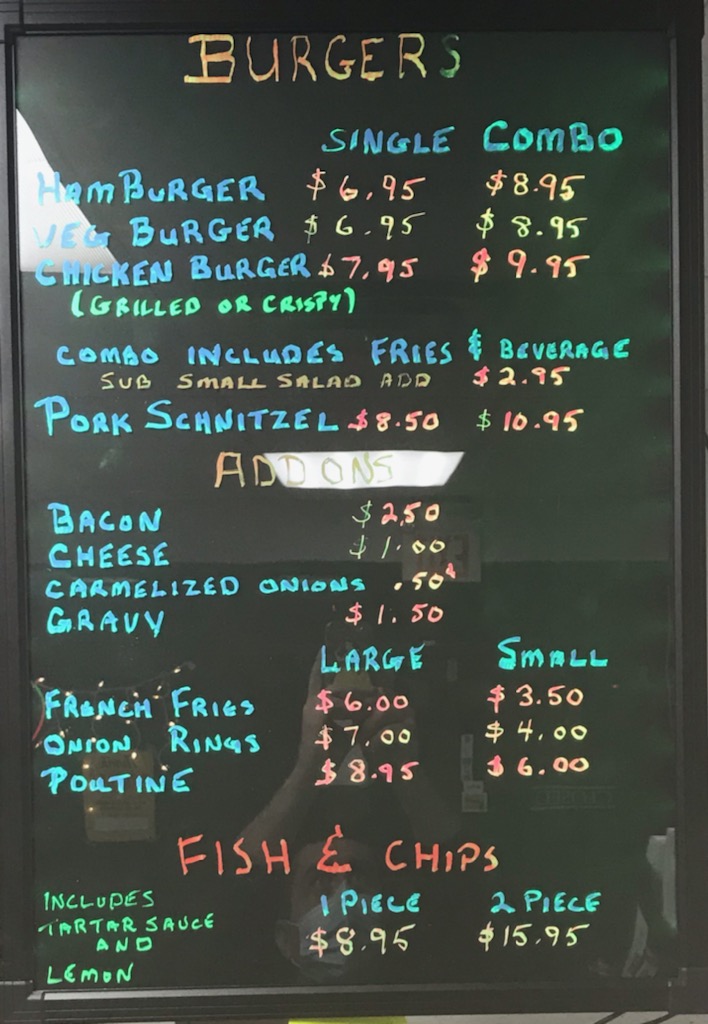 BURGERS
SINGLE COMBO
HAMBURGER $6.95 $8.95
VEG BURGER $6.95 $8.95
CHICKEN BURGER $7.95 $9.95
(GRILLED OR CRISPY)
COMBO INCLUDES FRIES & BEVERAGE
SUB SMALL SALAD ADD $2.95
PORK SCHNITZEL $8.50 $10.95
ADD ONS
BACON $2.50
CHEESE $1.00
CARMELIZED ONIONS .50¢
GRAVY $1.50
LARGE SMALL
FRENCH FRIES $6.00 $3.50
ONION RINGS $7.00 $4.00
POUTINE $8.95 $6.00
FISH & CHIPS
INCLUDES 1 PIECE 2 PIECE
TARTAR SAUCE
AND $8.95 $15.95
LEMON